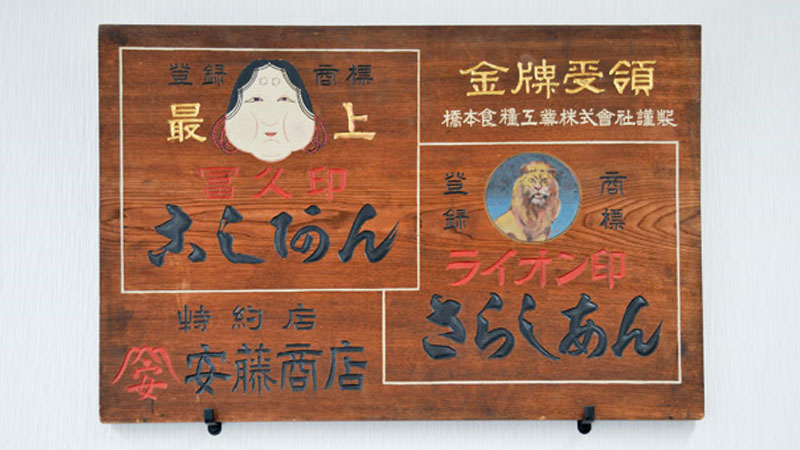 登録 商標
最上
冨久印
こしあん
金牌受領
橋本食糧工業株式會社謹製
登録 商標
ライオン印
さらしあん
特約店
安 安藤商店